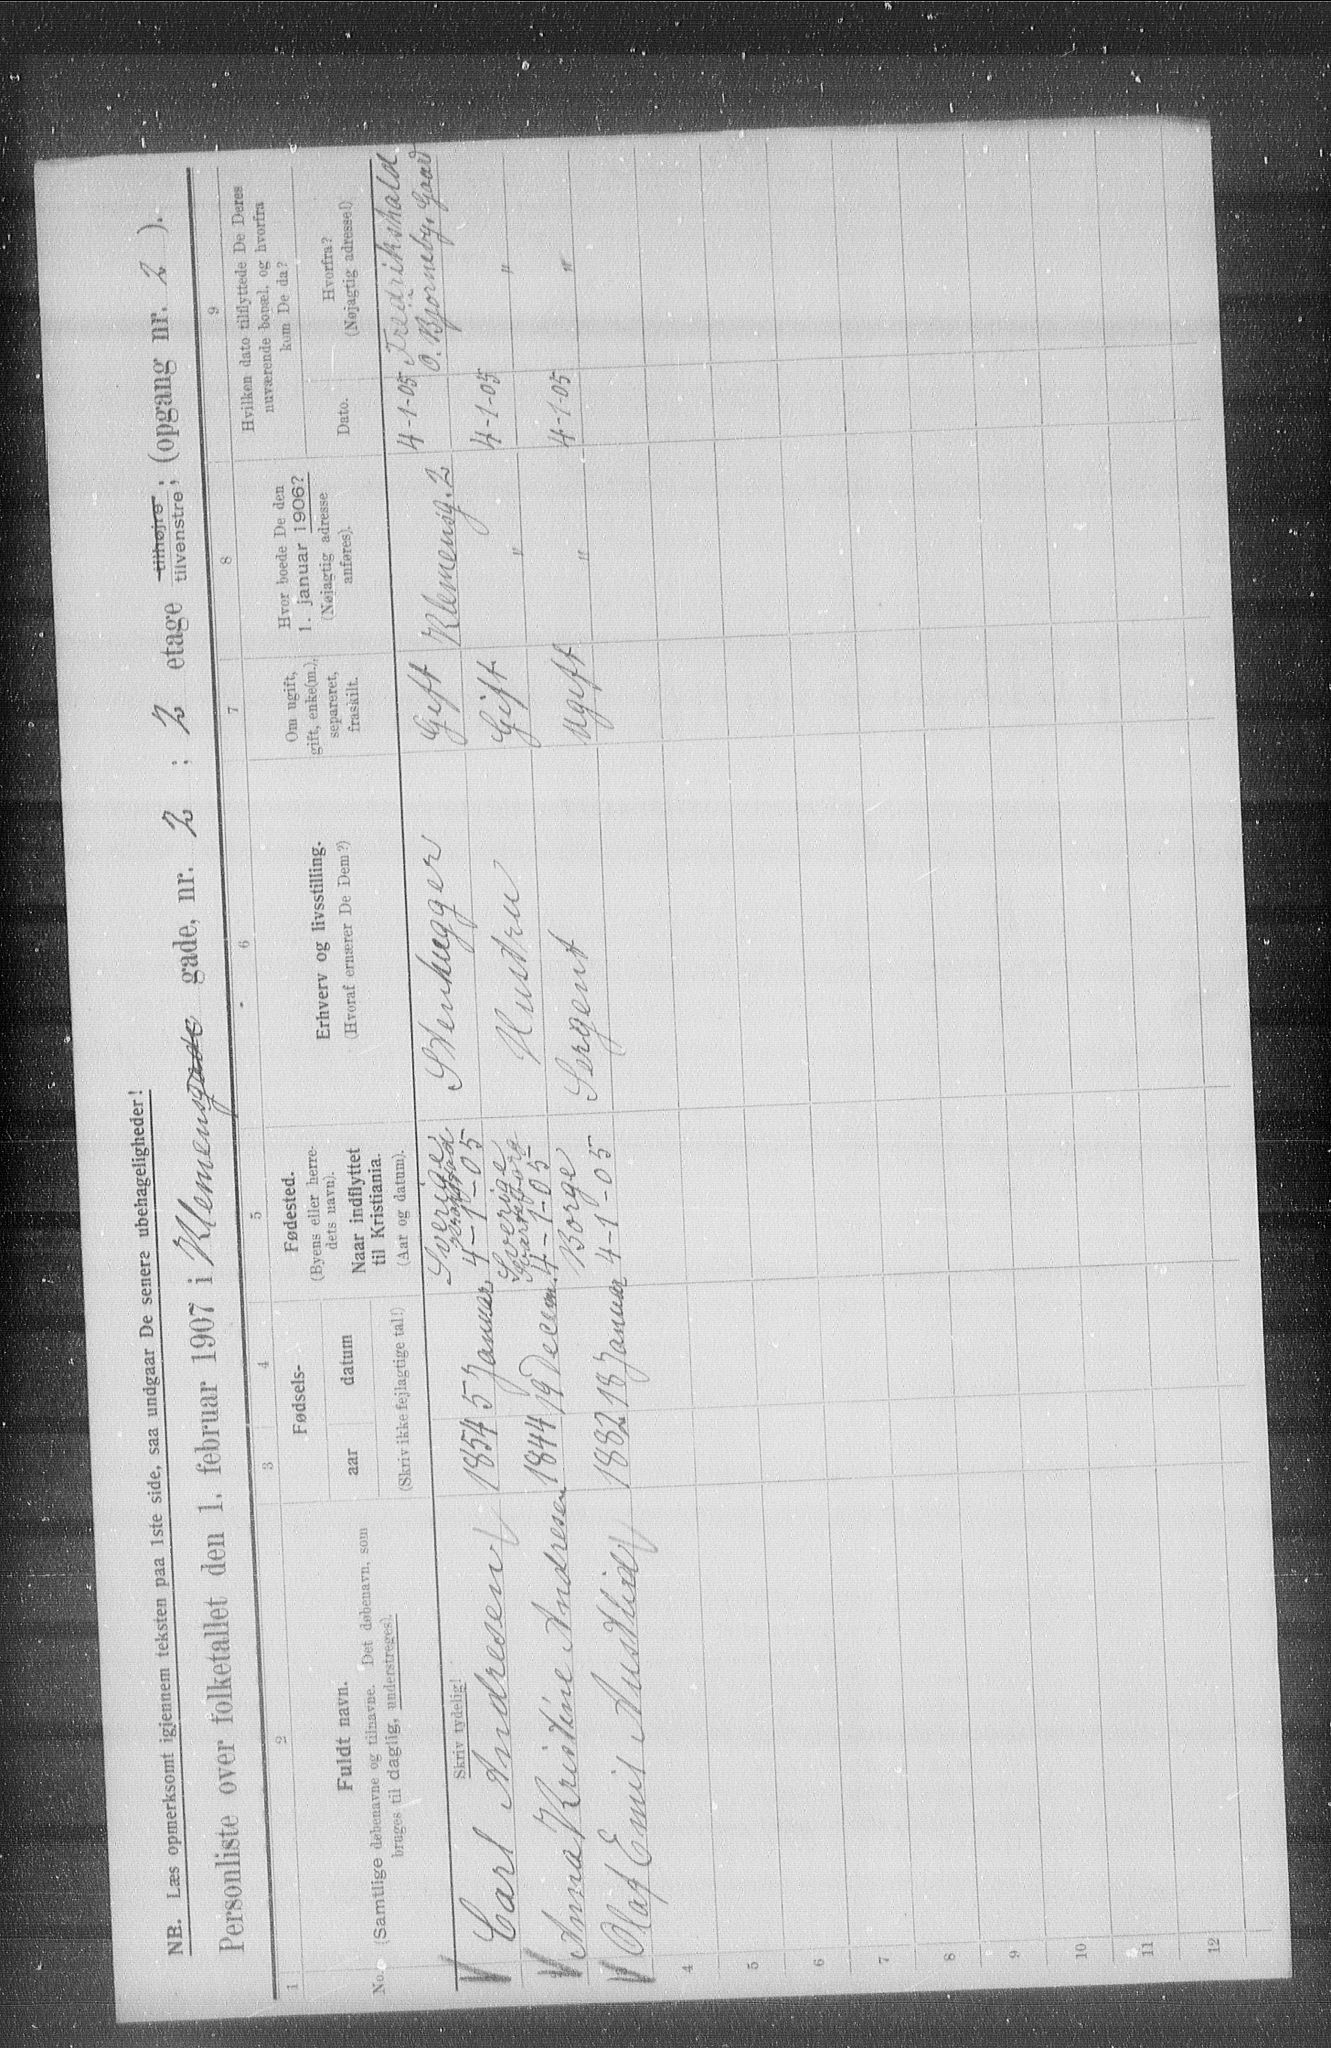 NB. Læs opmerksomt igjennem teksten paa 1ste side, saa undgaar De senere ubehageligheder!
Personliste over folketallet den 1. februar 1907 i Klemensgade gade, nr. 2 ; 2 etage tilhøjre ; tilvenstre ; (opgang nr. 2 ).
1 2 3 4 5 6 7 8 9
No. Fuldt navn.
(Samtlige døbenavne og tilnavne. Det døbenavn, som
bruges til daglig, understreges).
Skriv tydelig!
Fødsels-
aar datum
(Skriv ikke fejlagtige tal!)
Fødested.
(Byens eller herre-
dets navn).
Naar indflyttet
til Kristiania.
(Aar og datum).
Erhverv og livsstilling.
(Hvoraf ernærer De Dem?)
Om ugift,
gift, enke(m.),
separeret,
fraskilt.
Hvor boede De den
1. januar 1906?
(Nøjagtig adresse
anføres).
Hvilken dato tilflyttede De Deres
nuværende bopæl, og hvorfra
kom De da?
Dato.
Hvorfra?
(Nøjagtig adresse!)
Carl Andresen 1854 5 Januar Sverige 4-1-05 Stenhugger Gift Klemensg. 2 4-1-05 Fredrikshald
O. Bjørneby. Gaard
Anna Kristine Andresen 1844 19 Decem. Sverige 4-1-05 Hustru Gift " 4-1-05 "
3 Olaf Emil Austlid 1882 18 Januar Borge 4-1-05 Sergent Ugift " 4-1-05 "
4
5
6
7
8
9
10
11
12